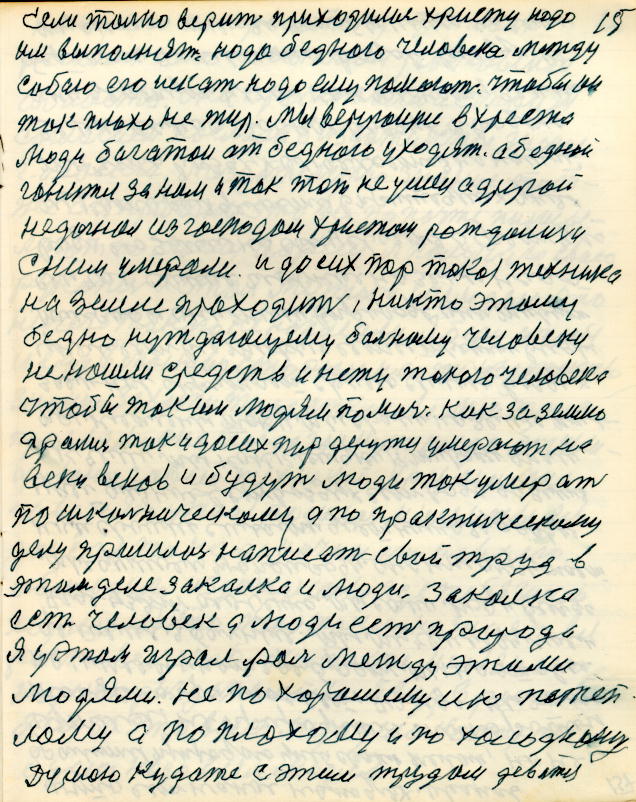 15
Если толко верит приходилос христу надо
им выполнят. надо бедного человека между
собаю его искат надо ему помогат. чтобы он
так плохо не жил. Мы веруюши в христа
люди богатои от бедного уходят. а бедной
гонится за ним и так тот не ушел а другой
недогнал из господом христом рождалися
с ним умерали. и до сих пор такая техника
на земле проходит, никто этому
бедно нуждающему болному человеку
не нашли средств и нету такого человека
чтобы таким людям помоч. Как за землю
дралис так и до сих пор дерутся умерают на
веки веков и будут люди так умерат
по школническому а по практическому
делу пришлос написат свой труд в
этом деле закалка и люди. Закалка
ест человек а люди ест природа
Я утом играл рол между этими
людями. не по хорошему и ю потеп
лому а по плохому и по холодному
Думаю куда же с этим трудом деватся